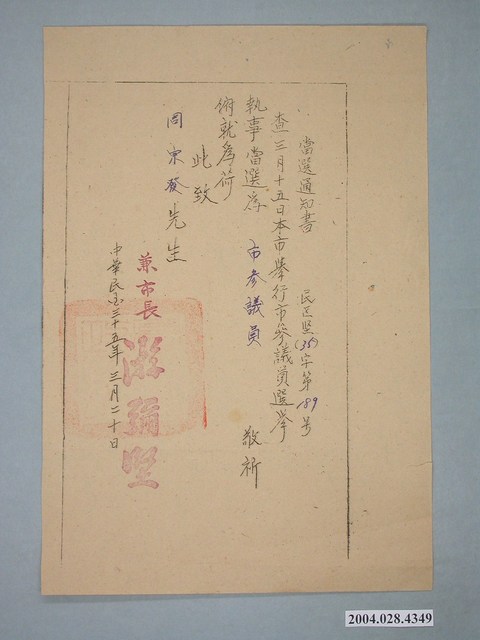 當選通知書 民巴堅(35)字第189号
查三月十五日本市舉行市參議員選举
執事當選為 市参議員 敬祈
俯就為荷
此致
周東發先生
兼市長
中華民国三十五年三月二十日
2004.028.4349